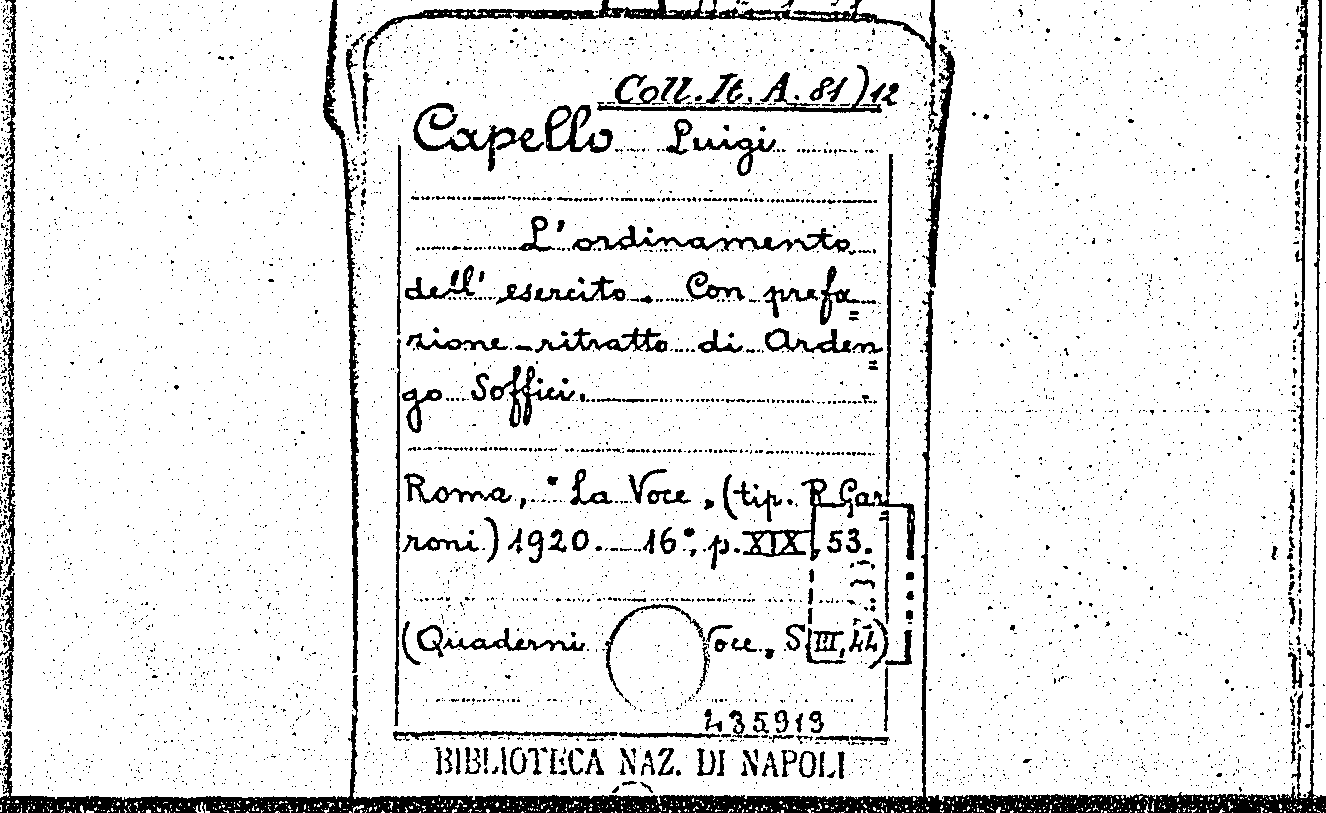 Coll. It. A. 81)12
Capello Luigi
L'ordinamento
dell' esercito. Con prefa=
zione-ritratto di Arden=
go Soffici.
Roma, "La Voce, (tip. R. Gar=
roni) 1920. 16°, p. XIX, 53.
(Quaderni Voce, S. III, 44)
435919
BIBLIOTECA NAZ. DI NAPOLI